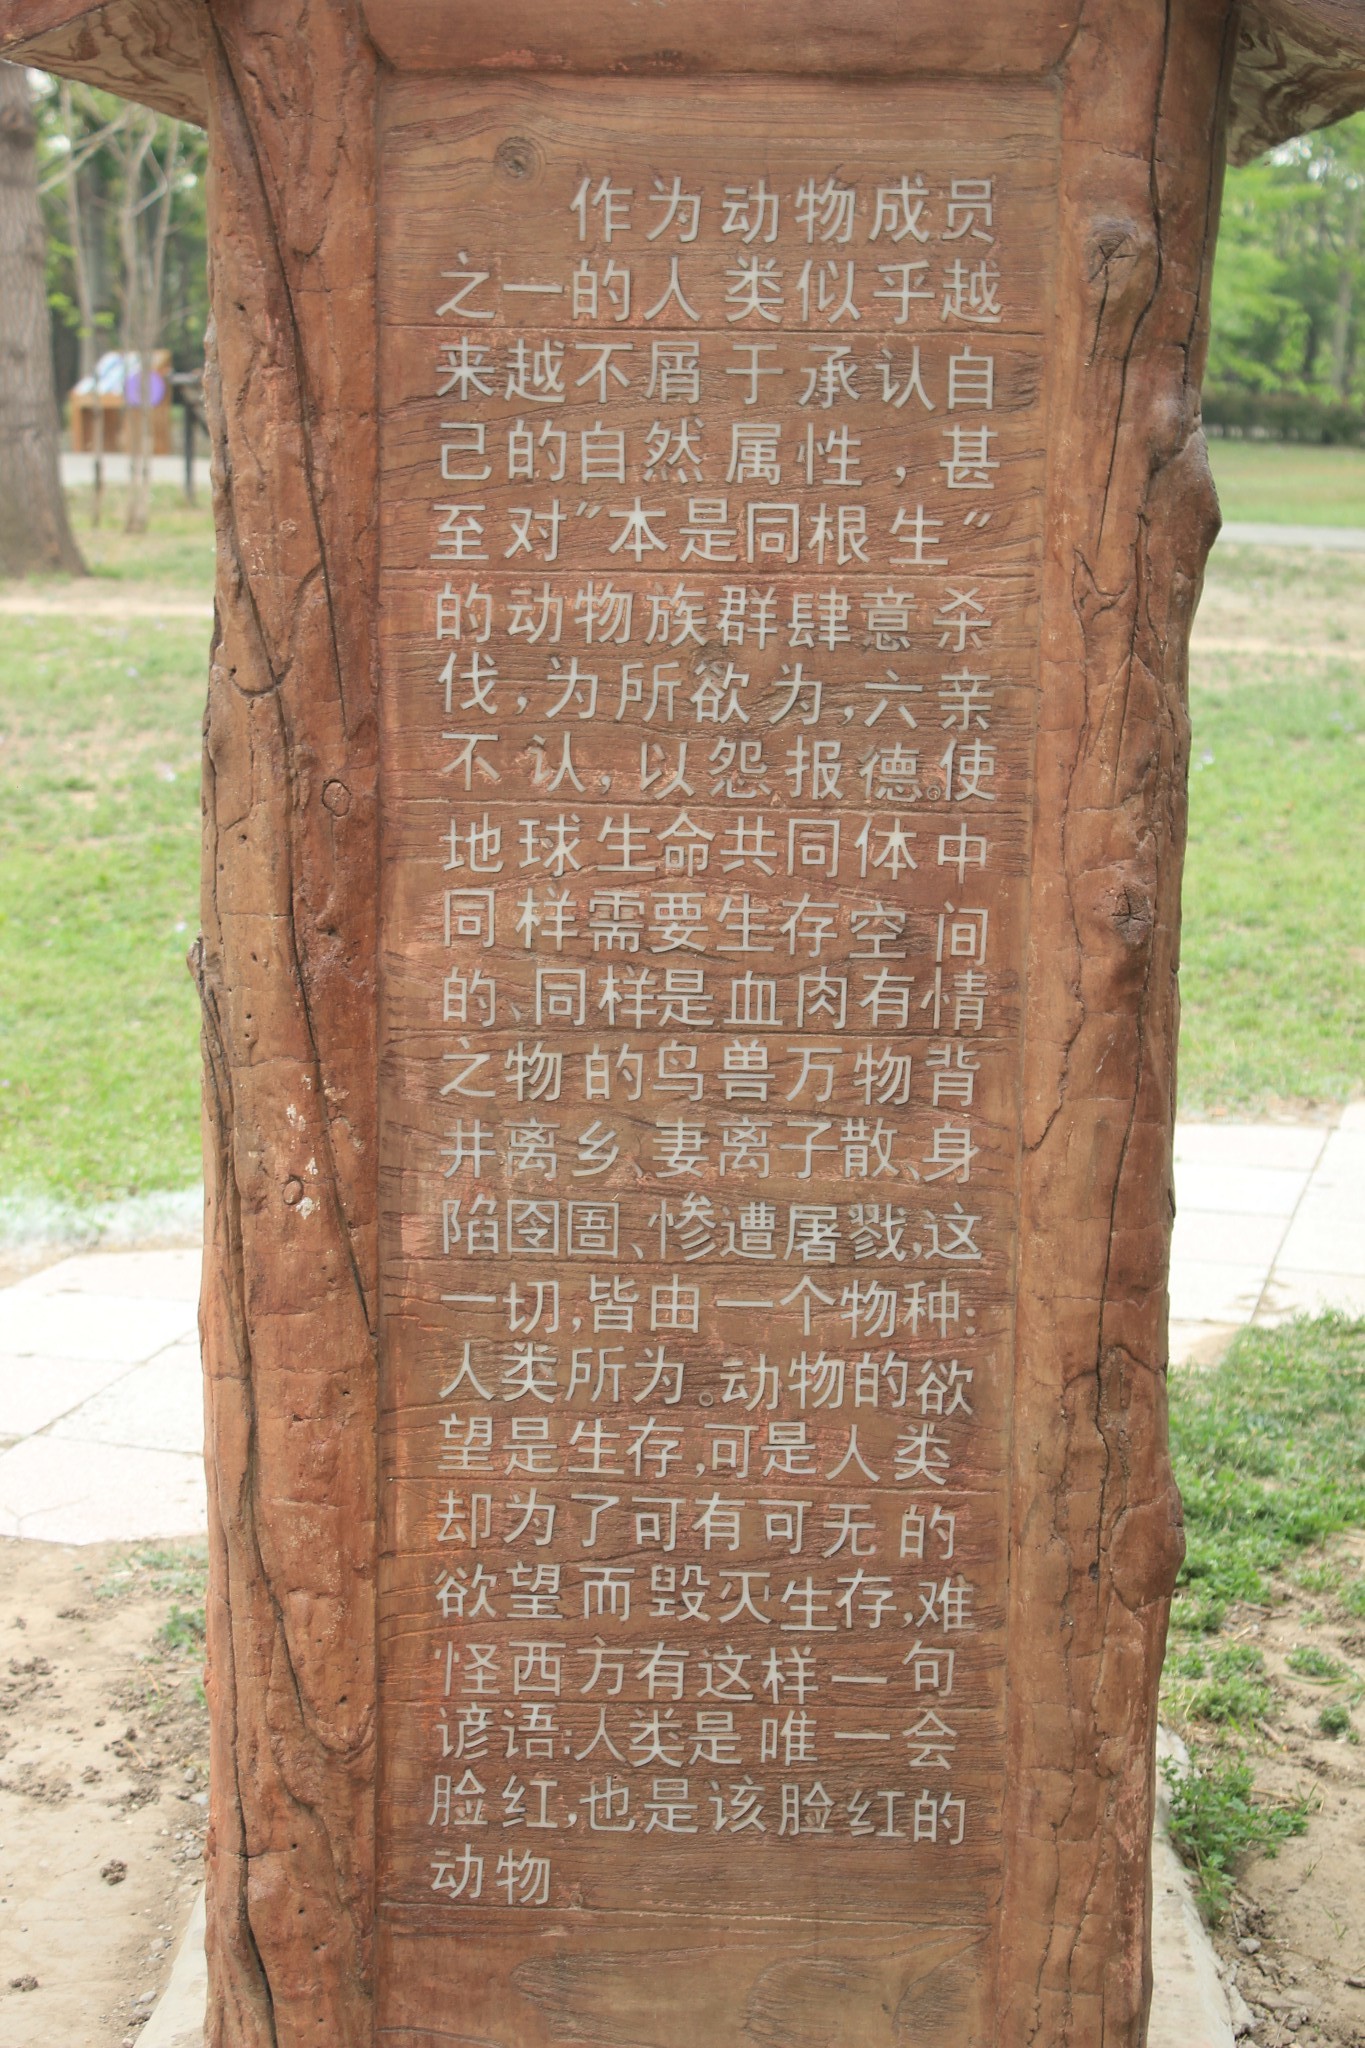 作为动物成员
之一的人类似乎越
来越不屑于承认自
己的自然属性，甚
至对"本是同根生"
的动物族群肆意杀
伐，为所欲为，六亲
不认，以怨报德。使
地球生命共同体中
同样需要生存空间
的、同样是血肉有情
之物的鸟兽万物背
井离乡、妻离子散、身
陷囹圄、惨遭屠戮，这
一切，皆由一个物种：
人类所为。动物的欲
望是生存，可是人类
却为了可有可无的
欲望而毁灭生存，难
怪西方有这样一句
谚语：人类是唯一会
脸红，也是该脸红的
动物